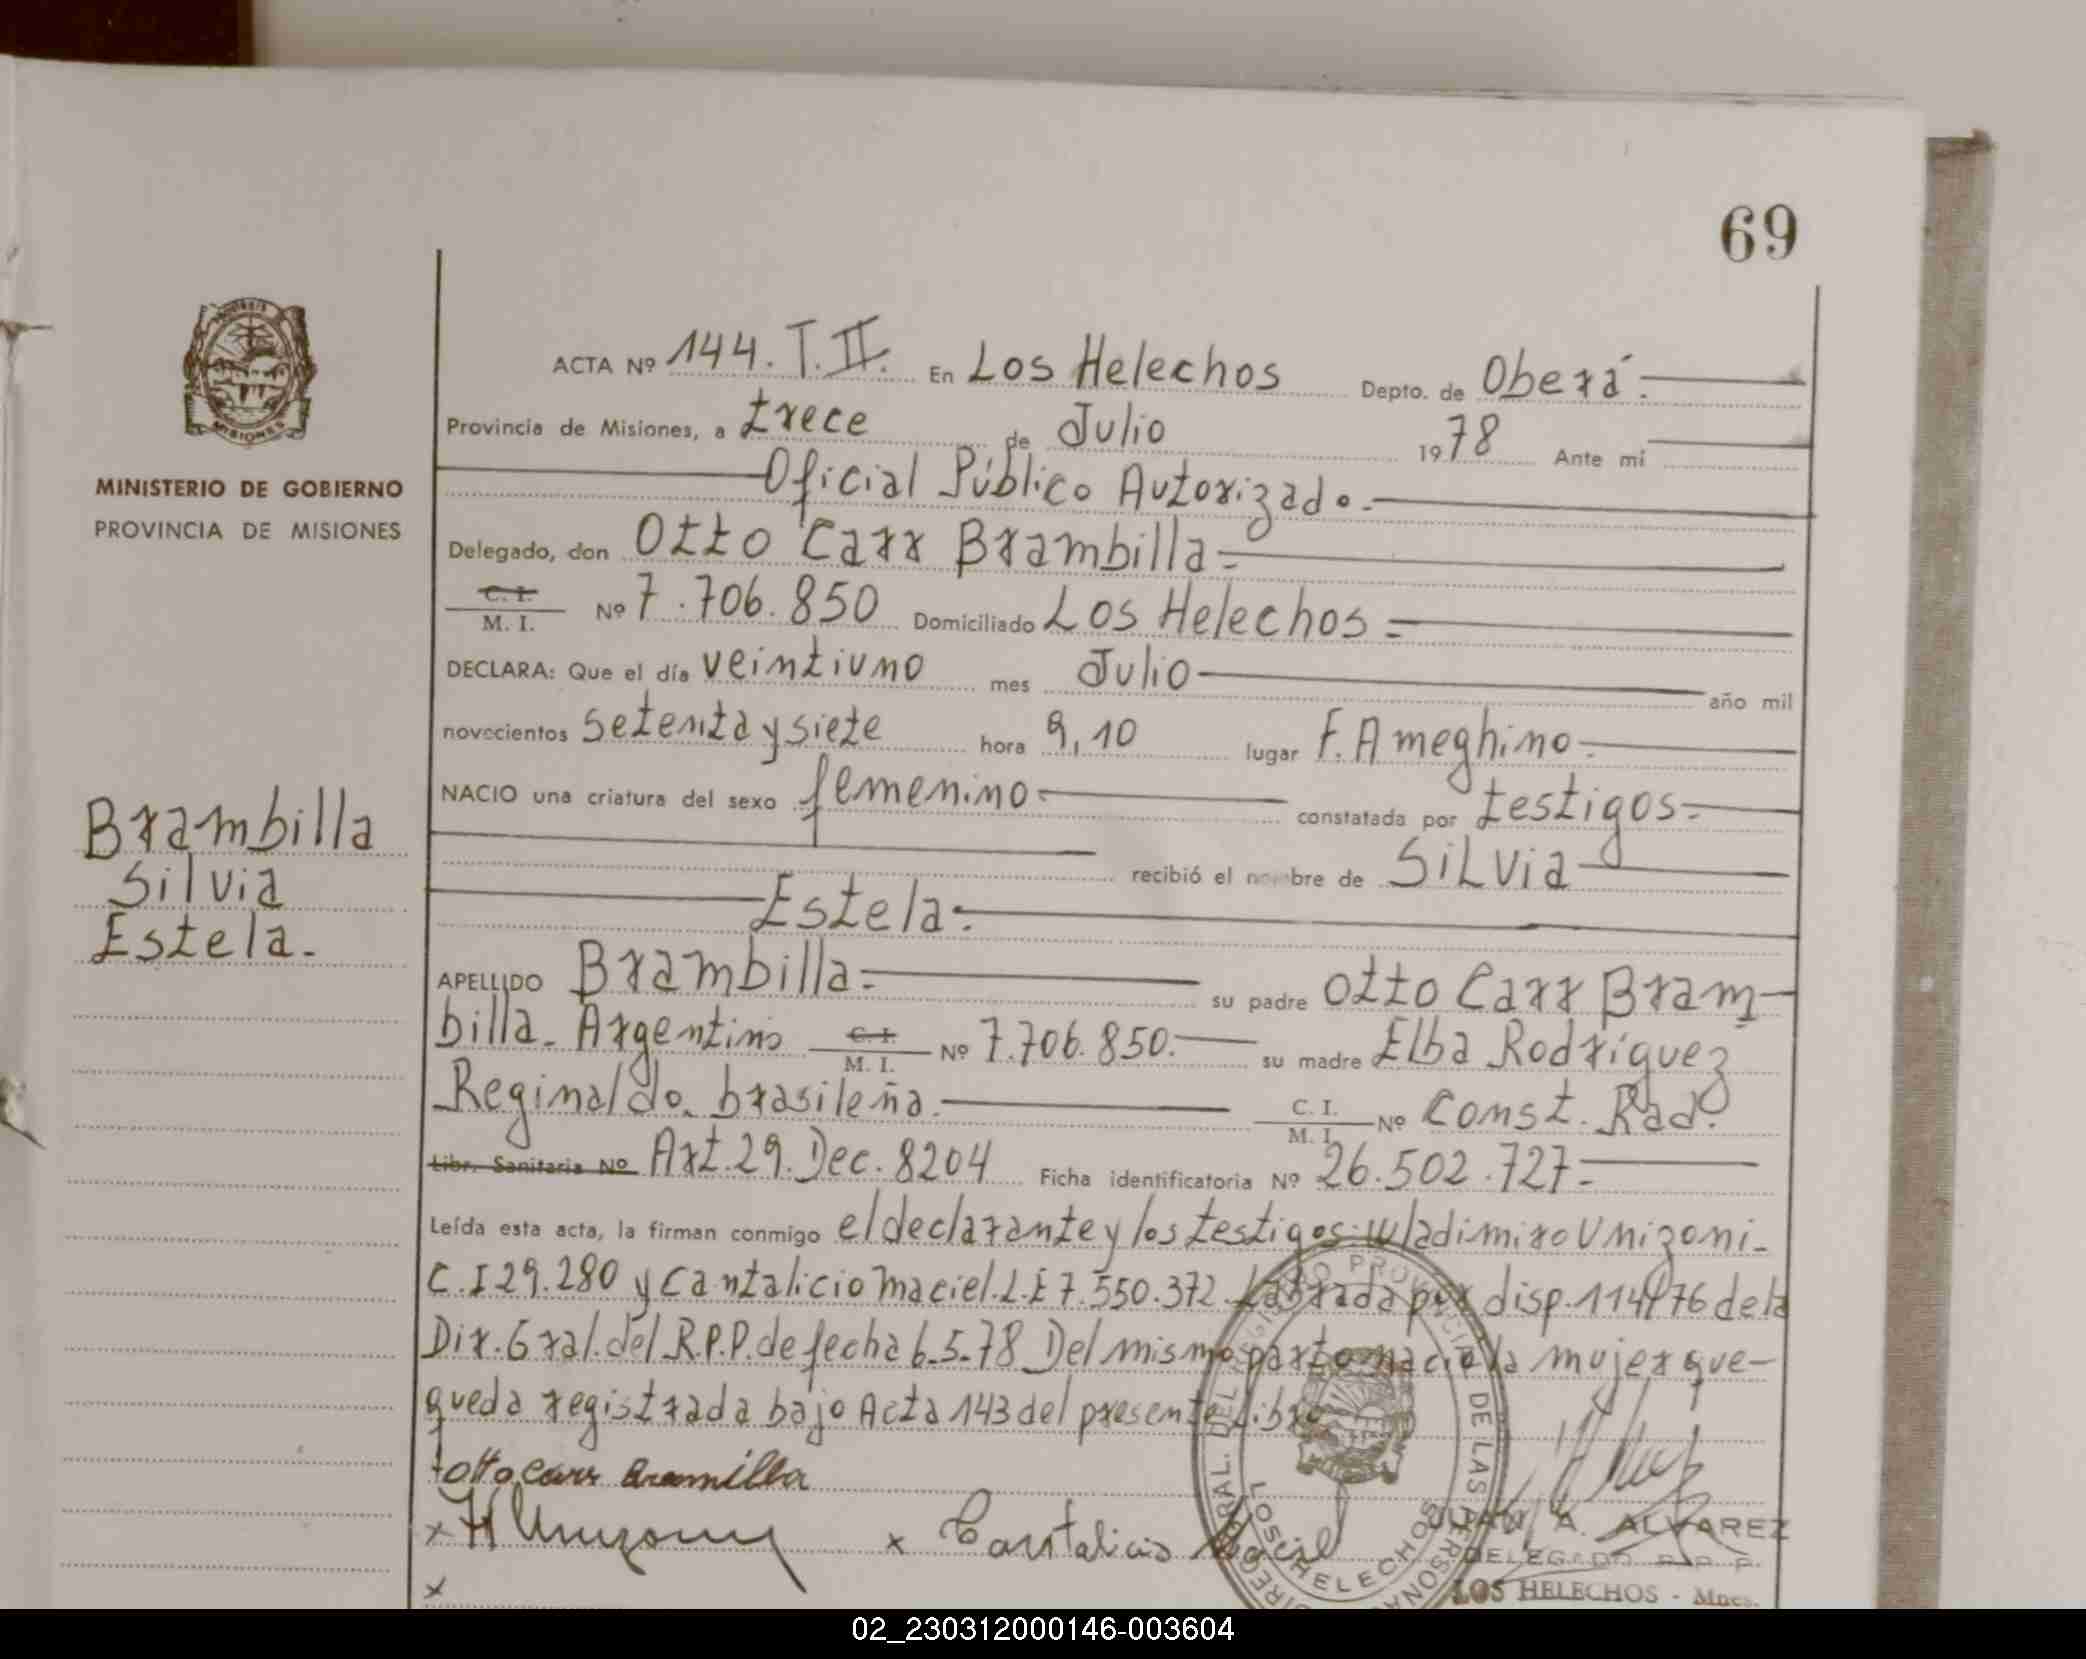 69
ACTA Nº 144. T. II. En Los Helechos Depto. de Oberá.
Provincia de Misiones, a trece de Julio 1978 Ante mí
Oficial Público Autorizado.
Delegado, don Otto Carr Brambilla
C. I.
M. I. Nº 7.706.850 Domiciliado Los Helechos
DECLARA: Que el día veintiuno mes Julio año mil
novecientos setenta y siete hora 9,10 lugar F. Ameghino
NACIO una criatura del sexo femenino constatada por testigos
recibió el nombre de Silvia
Estela.
APELLIDO Brambilla su padre Otto Carr Bram-
billa. Argentino C. I. M. I. Nº 7.706.850. su madre Elba Rodríguez
Reginaldo. brasileña. C. I. M. I. Nº Const. Rad.
Libr. Sanitaria Nº Art. 29. Dec. 8204 Ficha identificatoria Nº 26.502.727
Leída esta acta, la firman conmigo el declarante y los testigos: Wladimiro Unizoni-
C.I 29.280 y Cantalicio Maciel. L.E 7.550.372. Labrada por disp. 114/76 de la
Dir. Gral. del R.P.P. de fecha 6-5-78 Del mismo parto nació la mujer que-
queda registrada bajo Acta 143 del presente Libro
Otto Carr Bramilla
x x Cantalicio Maciel
x
JUAN A. ALVAREZ
DELEGADO R. P. P.
LOS HELECHOS - Mnes.
LOS HELECHOS
MISIONES
MINISTERIO DE GOBIERNO
PROVINCIA DE MISIONES
Brambilla
Silvia
Estela.
02_230312000146-003604